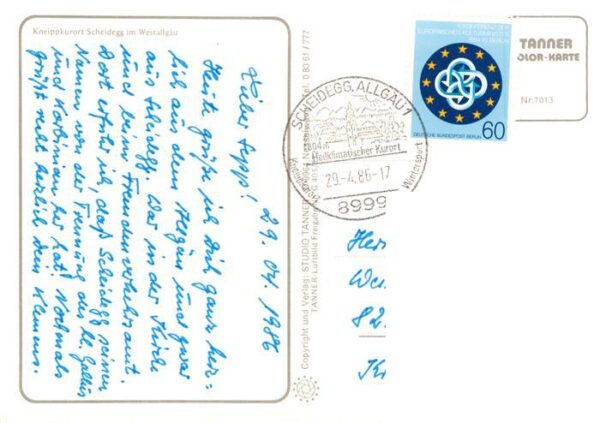 Kneippkurort Scheidegg im Westallgäu
29. 04. 1986
Lieber Sepp!
Heute grüße ich Dich ganz herz=
lich aus dem Allgäu und zwar
aus Scheidegg. War in der Kirche
und beim Fremdenverkehrsamt.
Dort erfuhr ich, daß Scheidegg seinen
Namen von der Trennung des hl. Gallus
und her hat. Nochmals
grüßt recht herzlich Dein Klemens.
Copyright und Verlag: STUDIO TANNER
TANNER-Luftbild Freigabe
0 83 61 / 777
SCHEIDEGG, ALLGÄU 1
Heilklimatischer Kurort
Wintersport
29.-4.86-17
8999
EUROPÄISCHEN KULTURMINISTER
1984 IN BERLIN
DEUTSCHE BUNDESPOST BERLIN
60
TANNER
OLOR-KARTE
Nr. 7013
Her
We
82
Kr